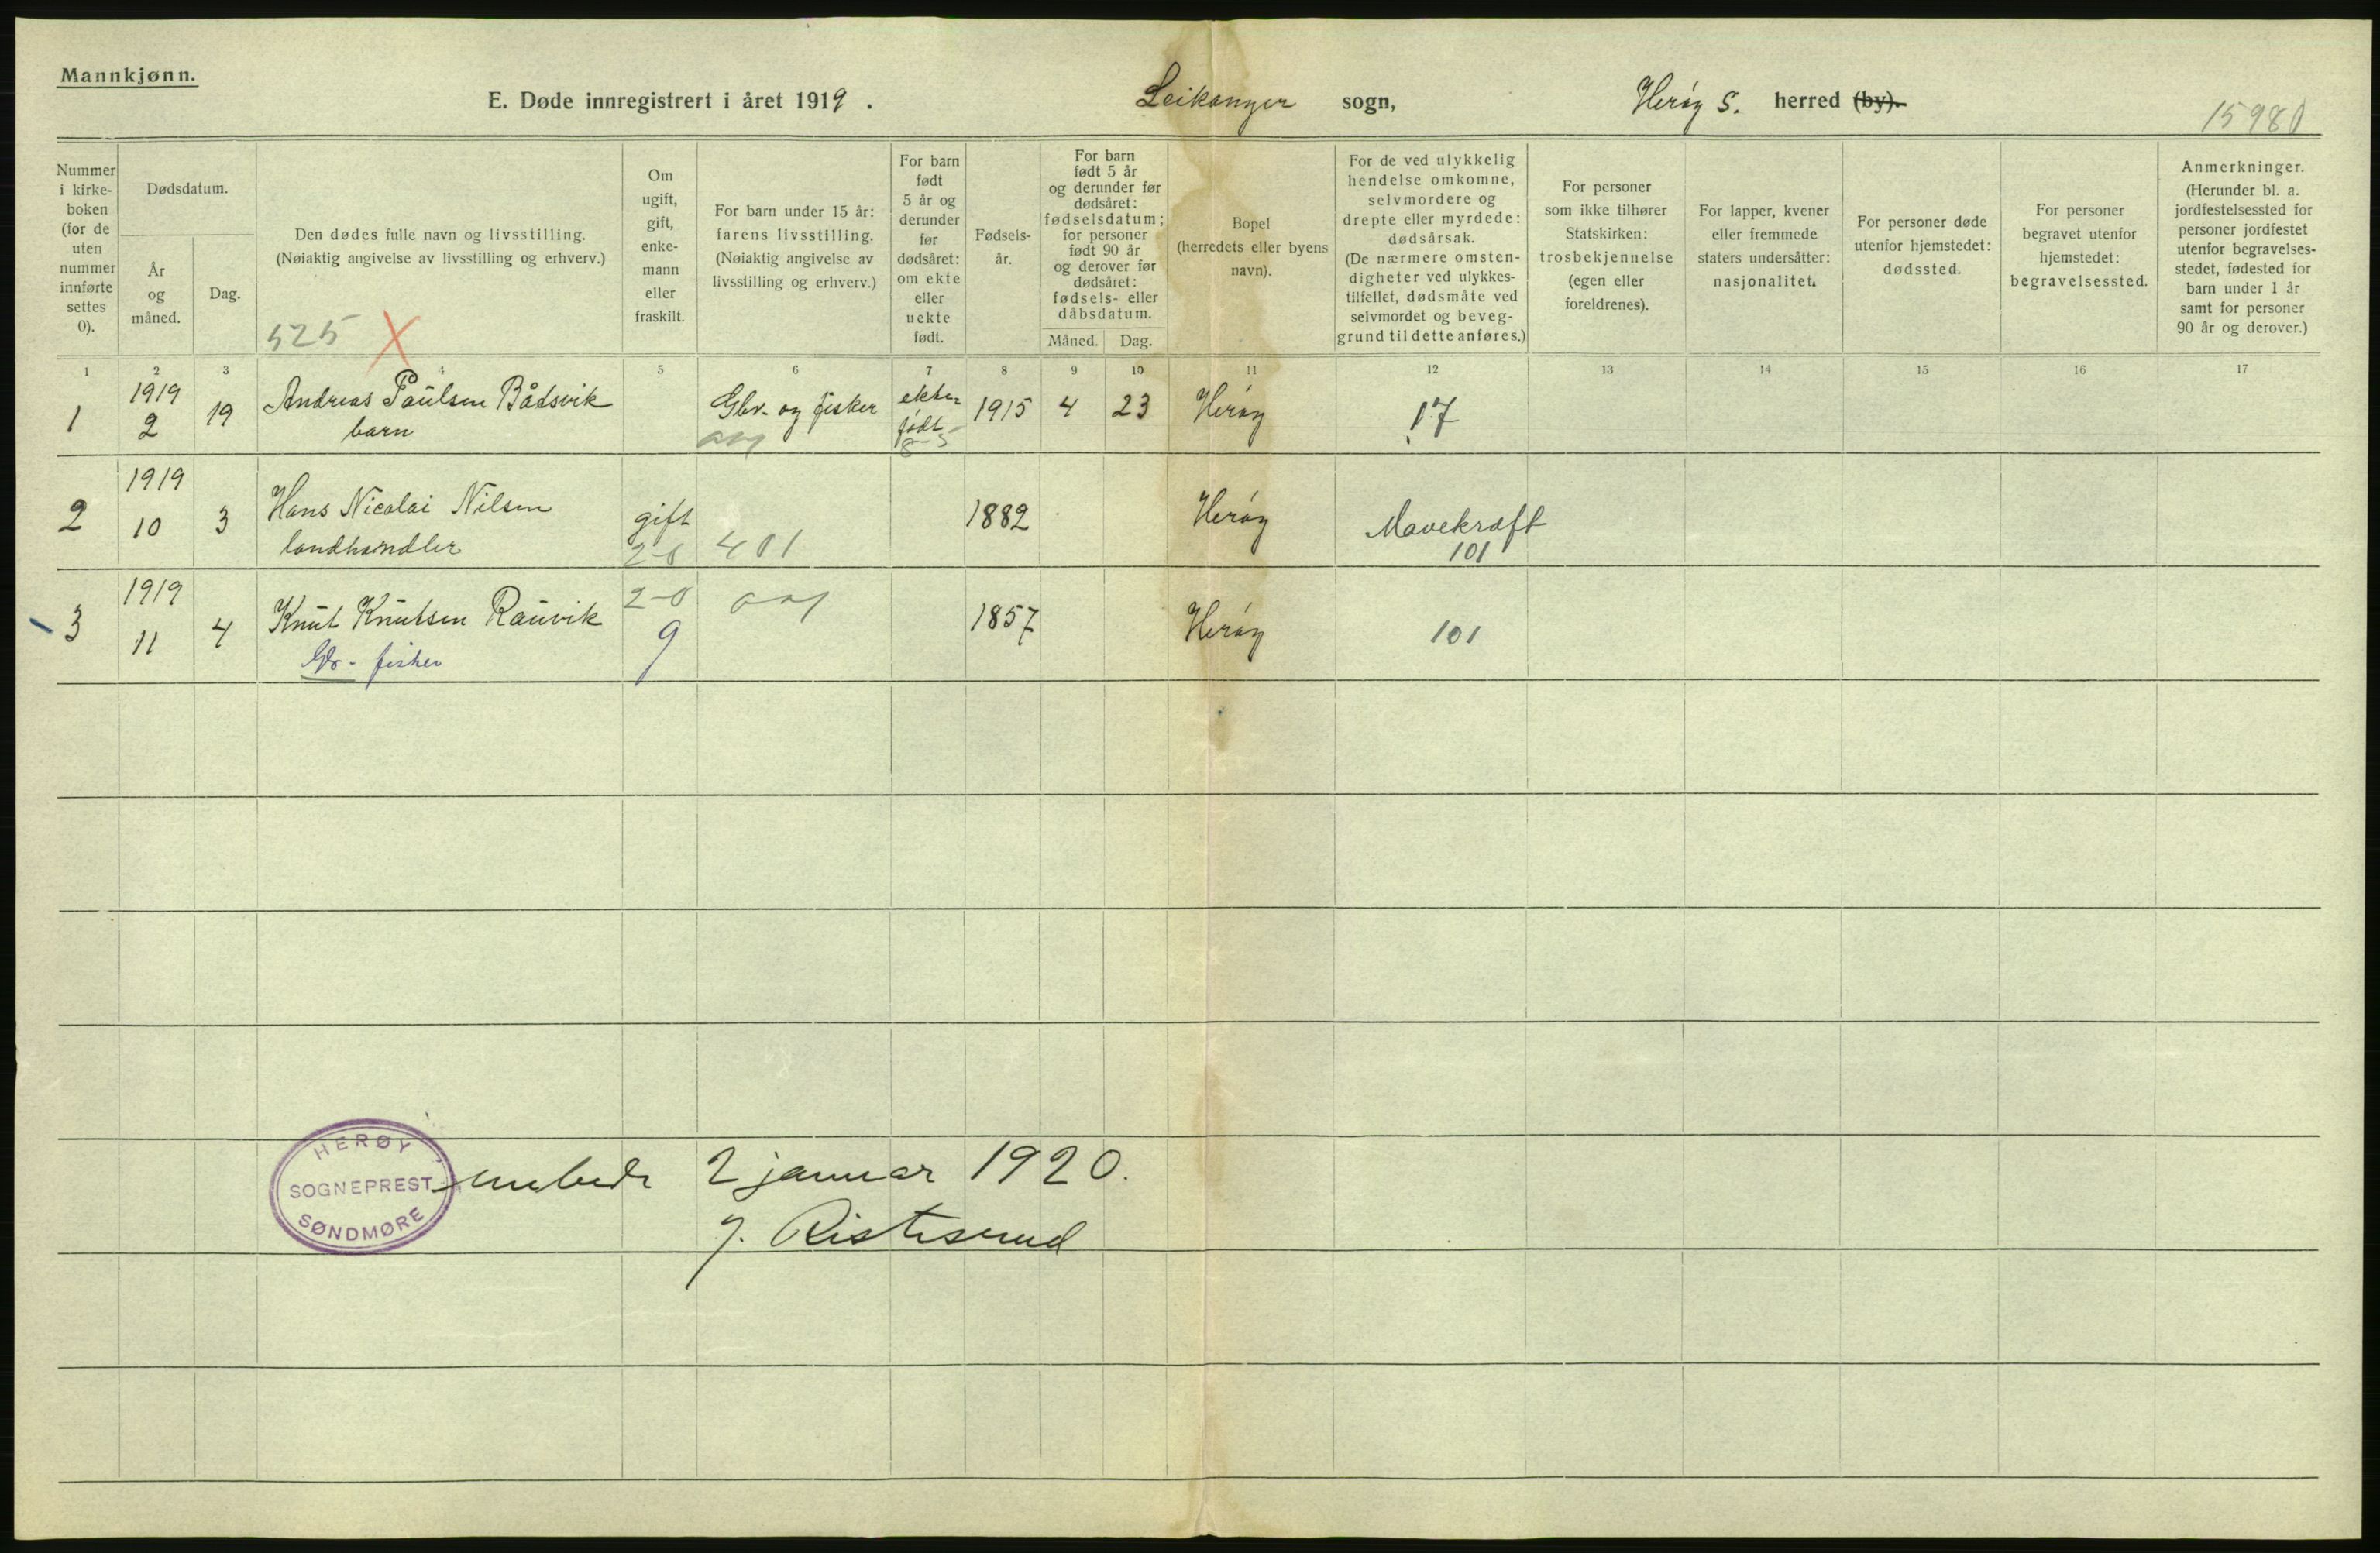 Mannkjønn.
E. Døde innregistrert i året 1919 .
Leikanger sogn,
Herøy S. herred (by).
15980
Nummer i kirke-boken (for de uten nummer innførte settes 0).
Dødsdatum.
År og måned.
Dag.
Den dødes fulle navn og livsstilling.
(Nøiaktig angivelse av livsstilling og erhverv.)
525 X
Om ugift, gift, enke-mann eller fraskilt.
For barn under 15 år: farens livsstilling.
(Nøiaktig angivelse av livsstilling og erhverv.)
For barn født 5 år og derunder før dødsåret: om ekte eller uekte født.
Fødsels-år.
For barn født 5 år og derunder før dødsåret: fødselsdatum; for personer født 90 år og derover før dødsåret: fødsels- eller dåbsdatum.
Måned. Dag.
Bopel (herredets eller byens navn).
For de ved ulykkelig hendelse omkomne, selvmordere og drepte eller myrdede: dødsårsak.
(De nærmere omsten-digheter ved ulykkes-tilfellet, dødsmåte ved selvmordet og beveg-grund til dette anføres.)
For personer som ikke tilhører Statskirken: trosbekjennelse (egen eller foreldrenes).
For lapper, kvener eller fremmede staters undersåtter: nasjonalitet.
For personer døde utenfor hjemstedet: dødssted.
For personer begravet utenfor hjemstedet: begravelsessted.
Anmerkninger.
(Herunder bl. a. jordfestelsessted for personer jordfestet utenfor begravelses-stedet, fødested for barn under 1 år samt for personer 90 år og derover.)
1 2 3 4 5 6 7 8 9 10 11 12 13 14 15 16 17
1 1919 2 19 Andreas Paulsen Båtsvik barn Gbr. og fisker ekte født 1915 4 23 Herøy 17
2 1919 10 3 Hans Nicolai Nilsen landhandler gift 2-0 401 1882 Herøy Mavekræft 101
3 1919 11 4 Knut Knutsen Rauvik Gbr - fisker 2-0 g 1857 Herøy 101
HERØY
SOGNEPREST
SØNDMØRE
embede 2 januar 1920.
J. Ristesund